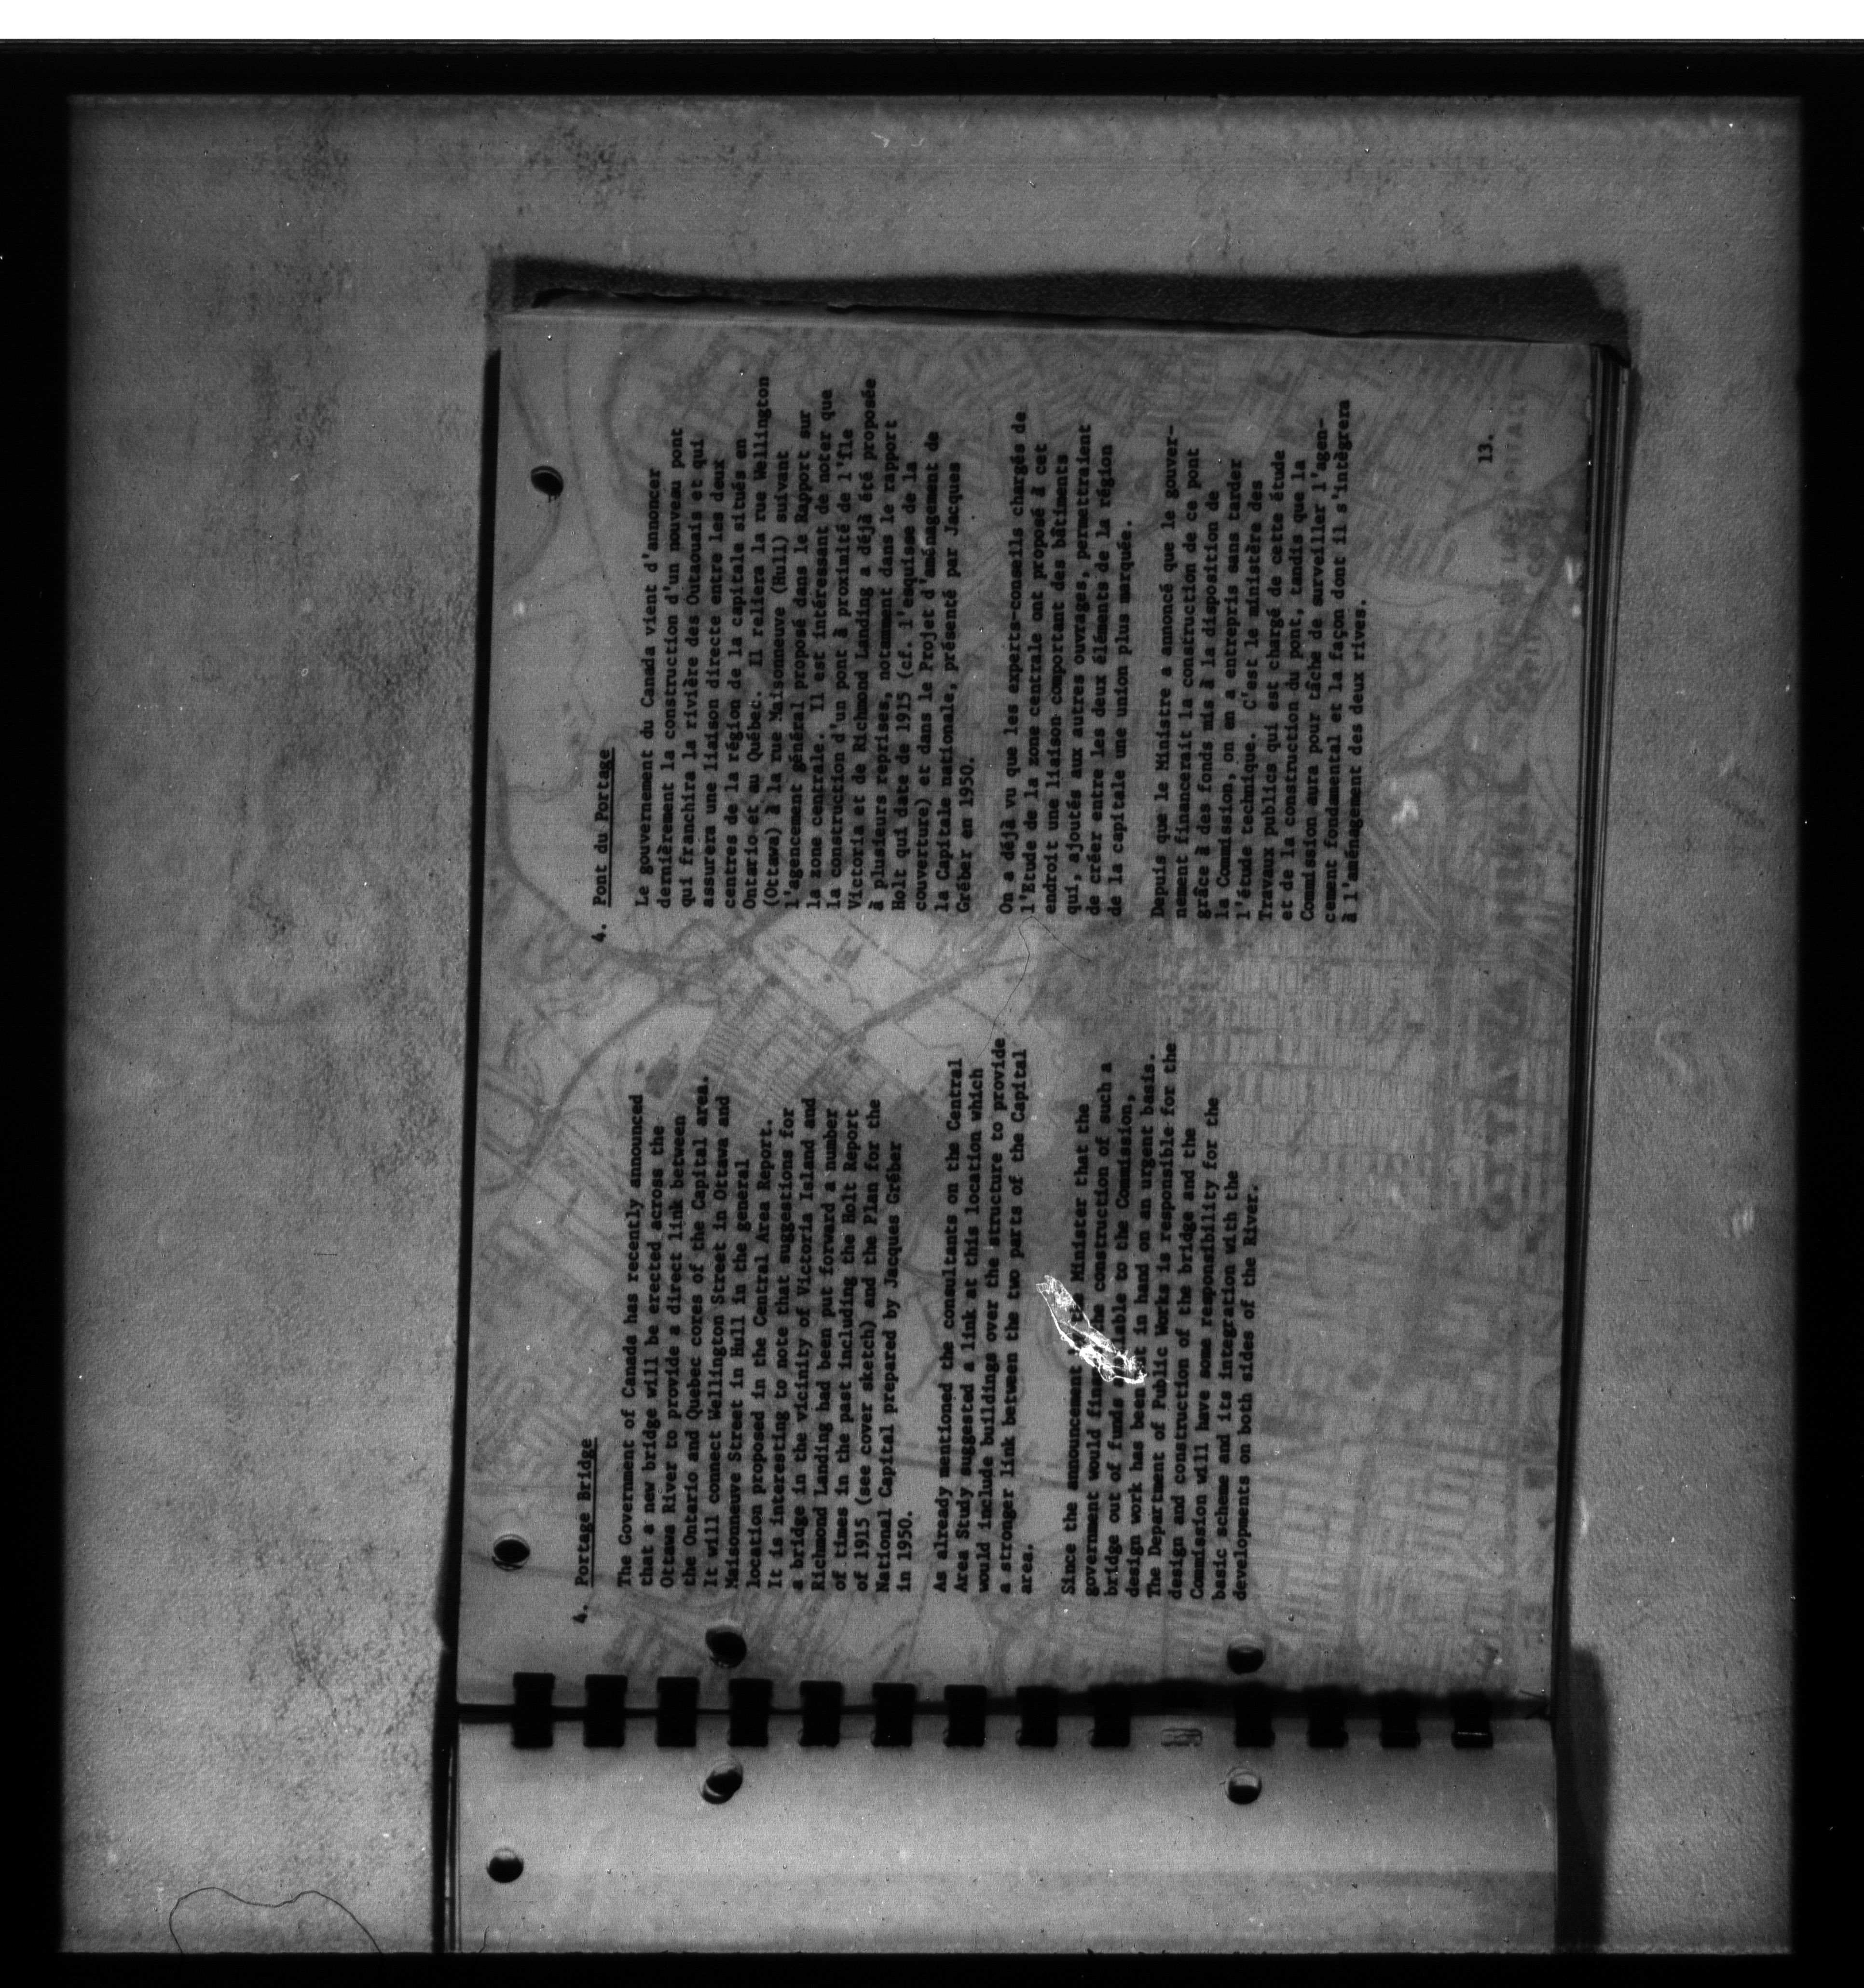 4. Portage Bridge
The Government of Canada has recently announced
that a new bridge will be erected across the
Ottawa River to provide a direct link between
the Ontario and Quebec cores of the Capital area.
It will connect Wellington Street in Ottawa and
Maisonneuve Street in Hull in the general
location proposed in the Central Area Report.
It is interesting to note that suggestions for
a bridge in the vicinity of Victoria Island and
Richmond Landing had been put forward a number
of times in the past including the Holt Report
of 1915 (see cover sketch) and the Plan for the
National Capital prepared by Jacques Gréber
in 1950.
As already mentioned the consultants on the Central
Area Study suggested a link at this location which
would include buildings over the structure to provide
a stronger link between the two parts of the Capital
area.
Since the announcement Minister that the
government would the construction of such a
bridge out of funds to the Commission,
design work has been in hand on an urgent basis.
The Department of Public Works is responsible for the
design and construction of the bridge and the
Commission will have some responsibility for the
basic scheme and its integration with the
developments on both sides of the River.
4. Pont du Portage
Le gouvernement du Canada vient d'annoncer
dernièrement la construction d'un nouveau pont
qui franchira la rivière des Outaouais et qui
assurera une liaison directe entre les deux
centres de la région de la capitale situés en
Ontario et au Québec. Il reliera la rue Wellington
(Ottawa) à la rue Maisonneuve (Hull) suivant
l'agencement général proposé dans le Rapport sur
la zone centrale. Il est intéressant de noter que
la construction d'un pont à proximité de l'île
Victoria et de Richmond Landing a déjà été proposée
à plusieurs reprises, notamment dans le rapport
Holt qui date de 1915 (cf. l'esquisse de la
couverture) et dans le Projet d'aménagement de
la Capitale nationale, présenté par Jacques
Gréber en 1950.
On a déjà vu que les experts-conseils chargés de
l'Etude de la zone centrale ont proposé à cet
endroit une liaison comportant des bâtiments
qui, ajoutés aux autres ouvrages, permettraient
de créer entre les deux éléments de la région
de la capitale une union plus marquée.
Depuis que le Ministre a annoncé que le gouver-
nement financerait la construction de ce pont
grâce à des fonds mis à la disposition de
la Commission, on en a entrepris sans tarder
l'étude technique. C'est le ministère des
Travaux publics qui est chargé de cette étude
et de la construction du pont, tandis que la
Commission aura pour tâche de surveiller l'agen-
cement fondamental et la façon dont il s'intègrera
à l'aménagement des deux rives.
13.